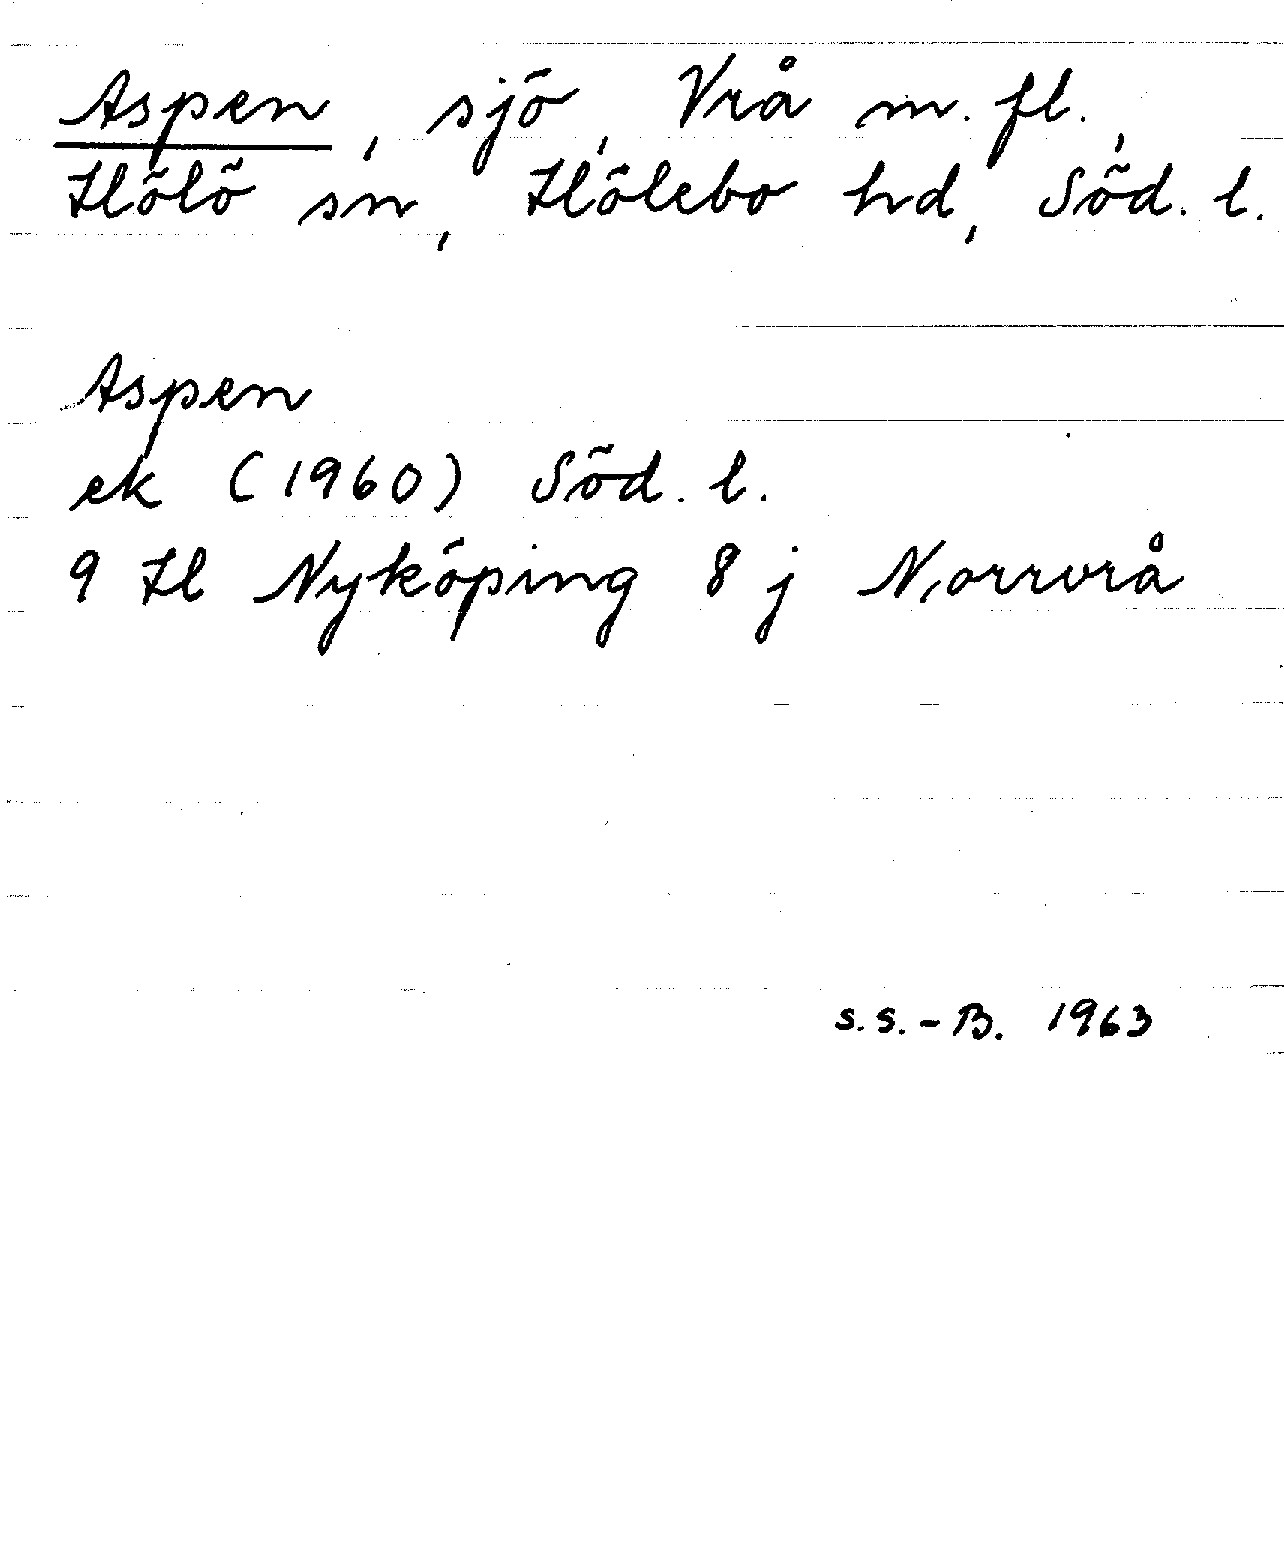 Aspen, sjö, Vrå m. fl.,
Hölö sn, Hölebo hd, Söd. l.
Aspen
ek (1960) Söd. l.
9 H Nyköping 8 j Norrvrå
S.S.-B. 1963